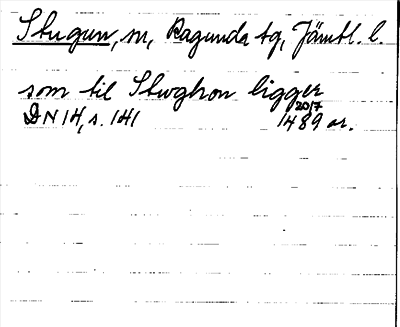 Stugun, sn, Ragunda tg, Jämtl. l.
som til Stwghon ligger
DN 14, s. 141 20/7 1489 or.